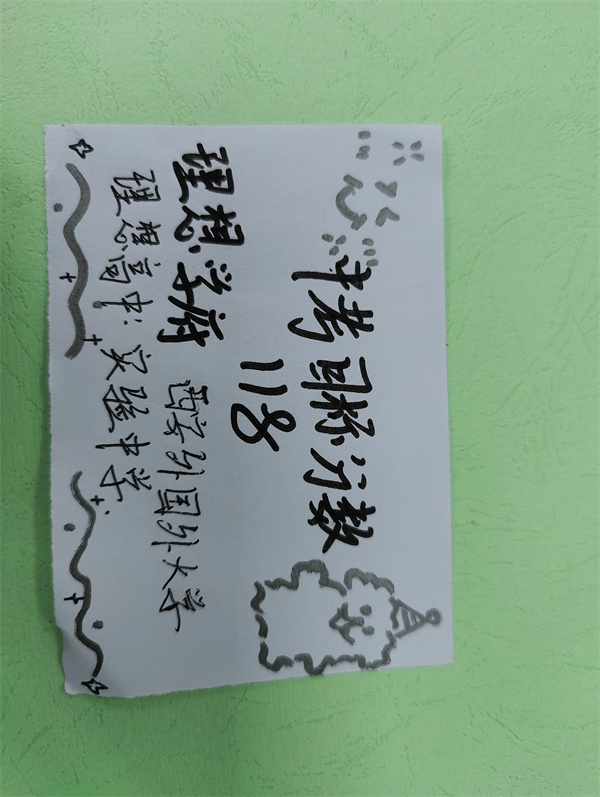 中考目标分数
118
理想学府
西安外国外大学
理想高中:实验中学